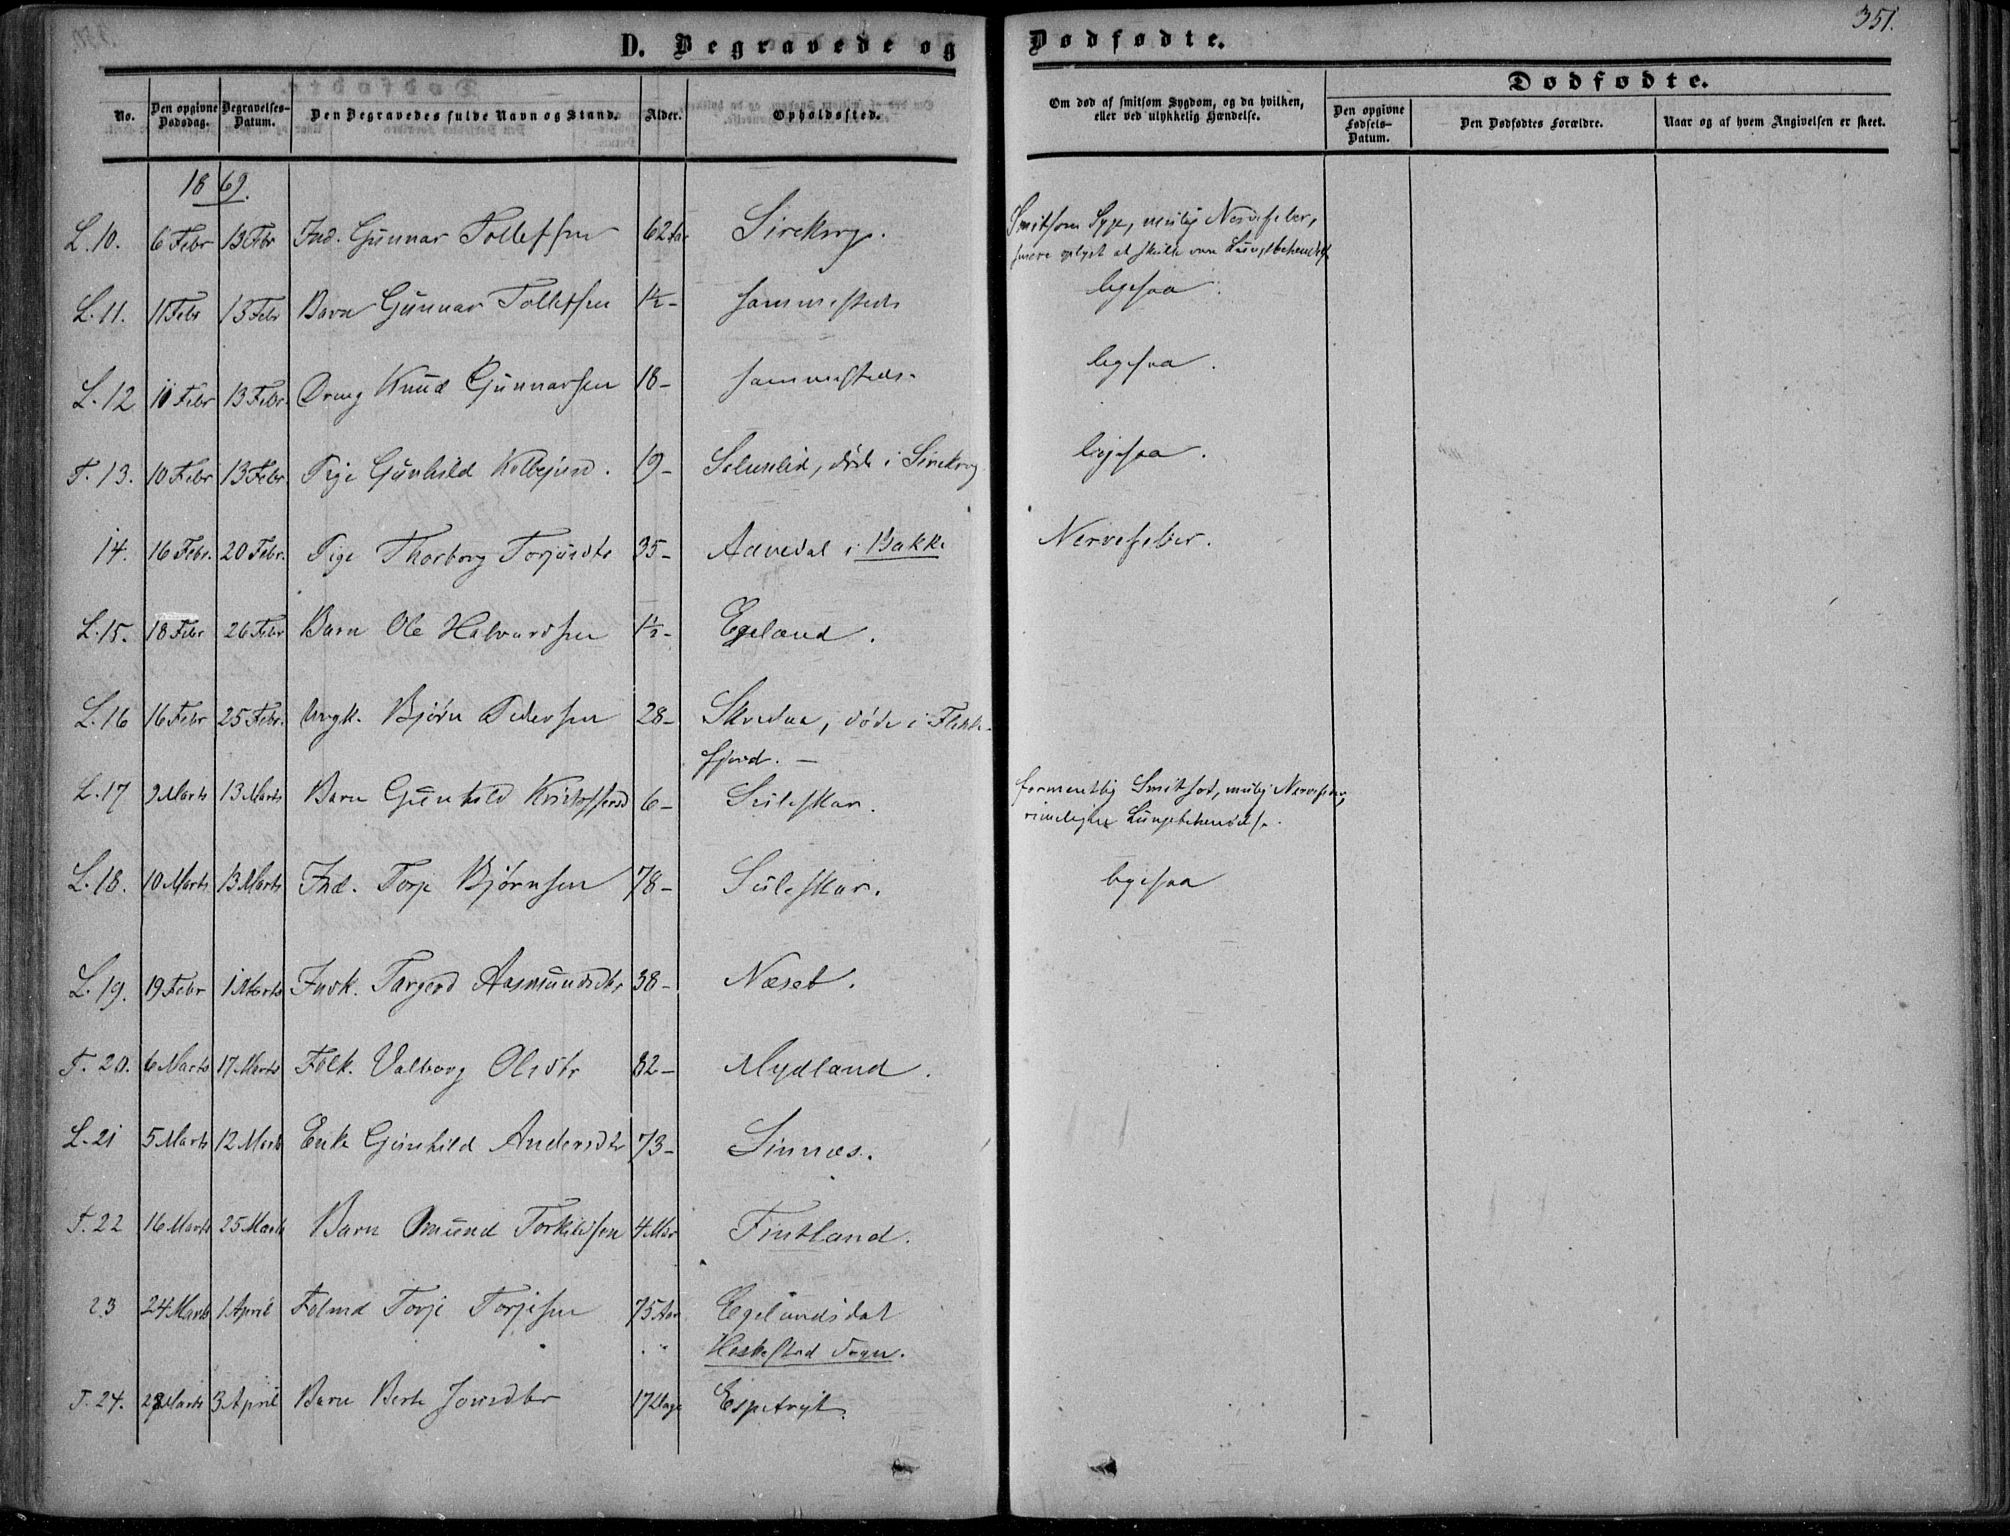 351.
D. Begravede og Dødfødte.
No. Den opgivne Dødsdag. Begravelses-Datum. Den Begravedes fulde Navn og Stand. Alder. Opholdssted. Om død af smitsom Sygdom, og da hvilken, eller ved ulykkelig Hændelse. Dødfødte.
Den opgivne Fødsels-Datum. Den Dødfødtes Forældre. Naar og af hvem Angivelsen er skeet.
1869.
L. 10. 6 Febr 13 Febr Ind. Gunnar Tollefsen 62 Aar Sirekrog. Smitsom Syge, mulig Nervefeber,
senere oplyst at skulle være Lungebetændelse
L. 11. 11 Febr 13 Febr Barn Gunnar Tollefsen 1½ - sammesteds ligesaa
L. 12 11 Febr 13 Febr. Dreng Knud Gunnarsen 18 - sammesteds. ligesaa.
T. 13. 10 Febr 13 Febr. Pige Gunhild Kolbejnsd. 19 - Seluslid, døde i Sirekrog ligesaa.
14. 16 Febr. 20 Febr. Pige Thorborg Torjusdtr 35 - Aavedal i Bakke Nervefeber.
L. 15. 18 Febr 26 Febr Barn Ole Halvardsen 1½ - Egeland.
L. 16 16 Febr 25 Febr. Ungk. Bjørn Pedersen 28 - Skredaa, døde i Flekke-
fjord. -
L. 17 9 Marts 13 Marts Barn Gunhild Kristoffersd 6 - Suleskar. formentlig Smitsot, mulig Nervefeber,
rimeligere Lungebetændelse.
L. 18. 10 Marts 13 Marts Ind. Torje Bjørnsen 78 - Suleskar. ligesaa
L. 19. 19 Febr 1 Marts Indk. Targerd Aasmundsdtr 38 - Næset.
T. 20. 6 Marts 17 Marts Følk. Valborg Olsdtr 82 - Mydland.
L. 21 5 Marts 12 Marts Enke Gunhild Andersdtr 73 - Sinnæs.
T. 22 16 Marts 25 Marts Barn Omund Torkildsen 4 Mdr Fintland.
23 24 Marts 1 April Følmd Torje Torjesen 75 Aar Egelandsdal
Heskestad Sogn.
T. 24. 28 Marts 3 April Barn Berte Jonsdtr 17 Dage Espetvejt.